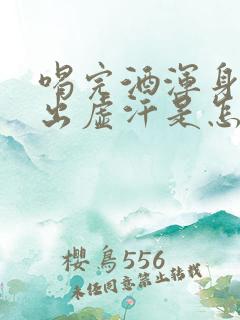 喝完酒浑身
出虚汗是怎
樱鸟556
未经同意禁止转载